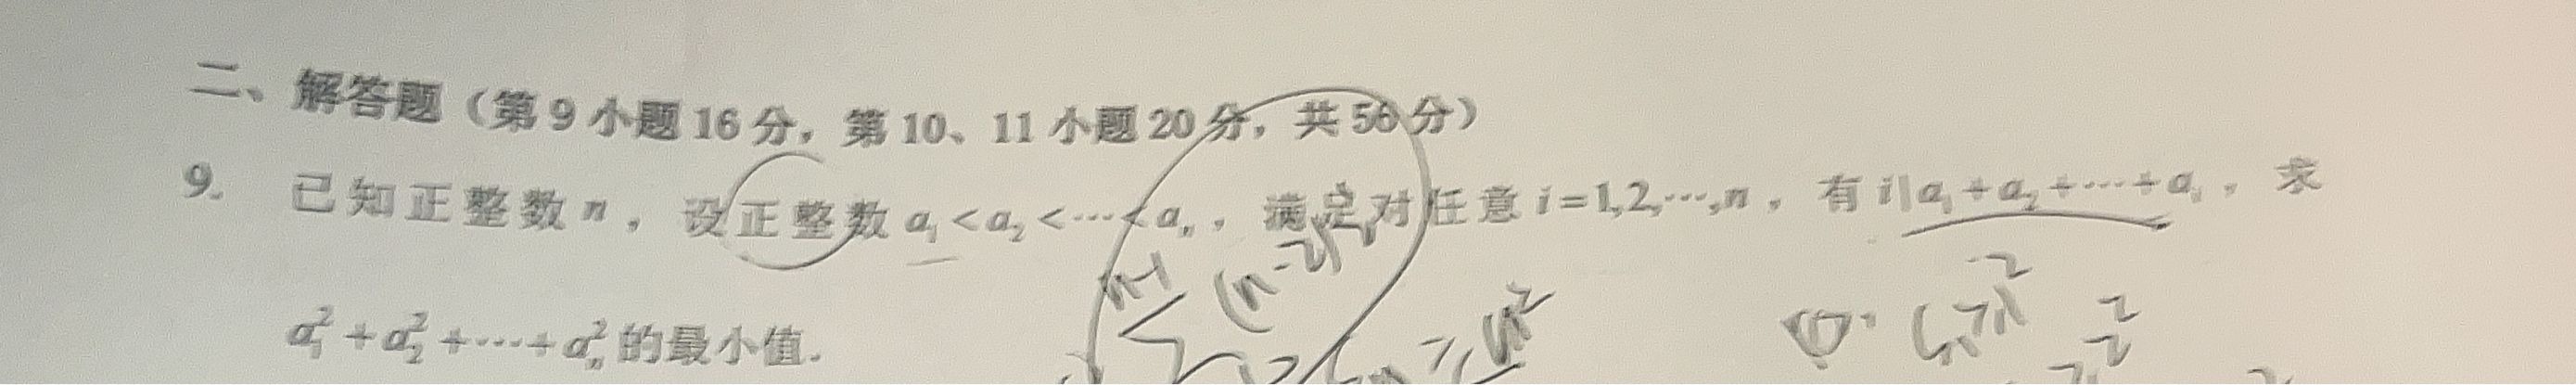 二、解答题（第 9 小题 16 分，第 10、11 小题 20 分，共 56 分）
9. 已知正整数 n，设正整数 a₁<a₂<⋯<aₙ，满足对任意 i=1,2,⋯,n，有 i|a₁+a₂+⋯+aᵢ，求
a₁²+a₂²+⋯+aₙ² 的最小值.